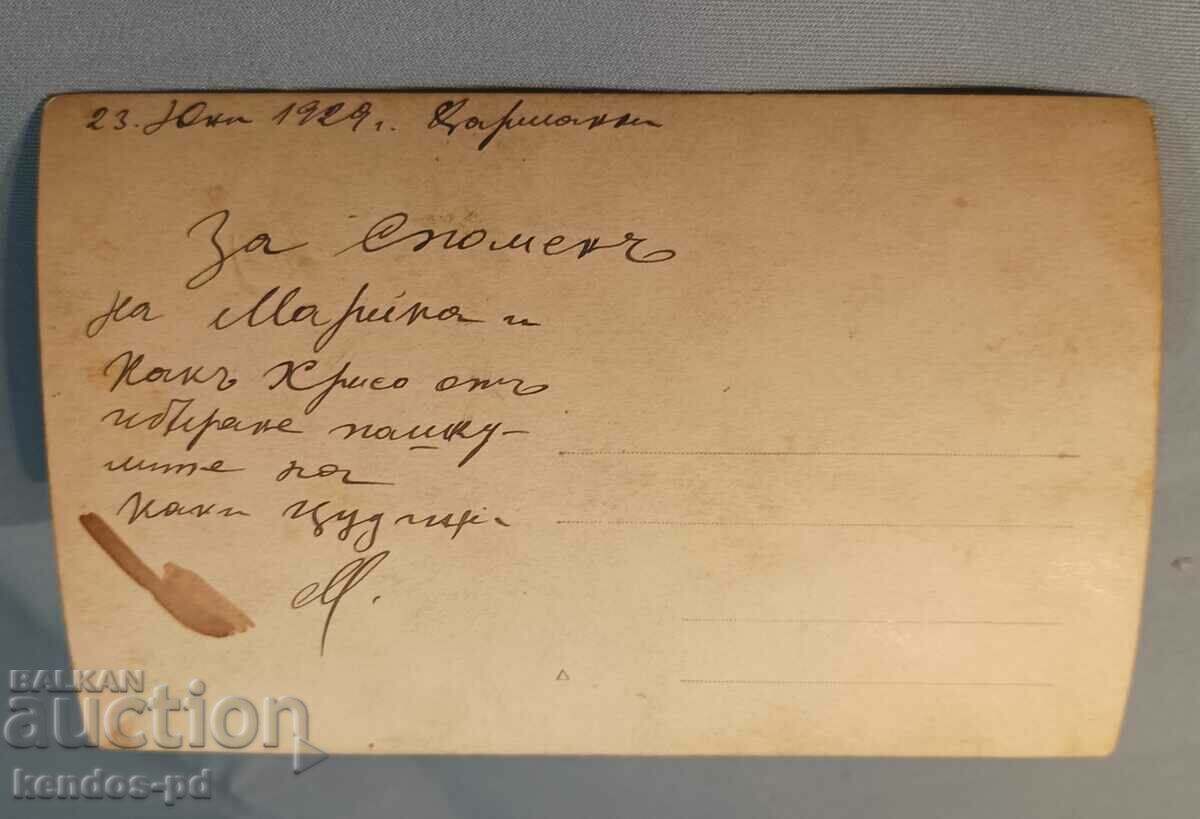 23. Юни 1929 г. Харманли
За Споменъ
на Марика и
Какъ Хрисо отъ
избиране пашку-
лите на
каки
М.
BALKAN
auction
kendos-pd